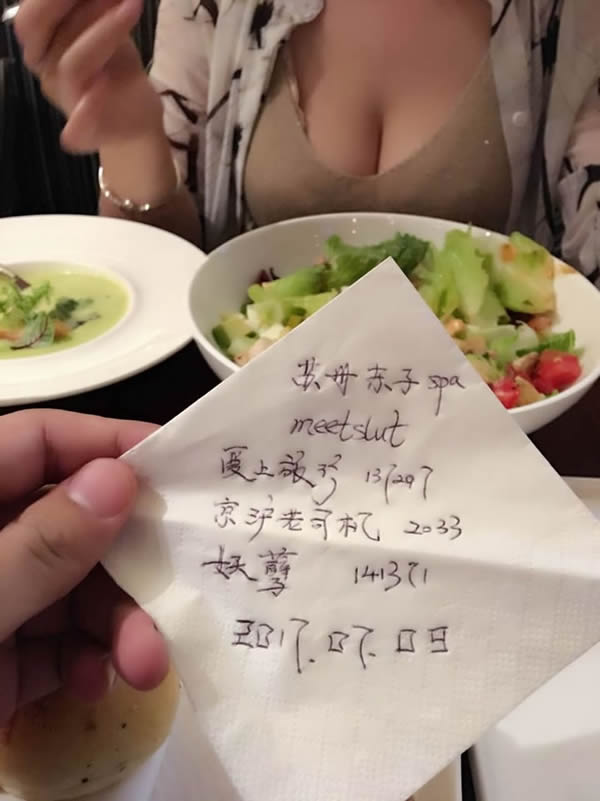 苏州东子spa
meetslut
爱上旅行 137297
京沪老司机 2033
妖孽 141371
2017.07.09